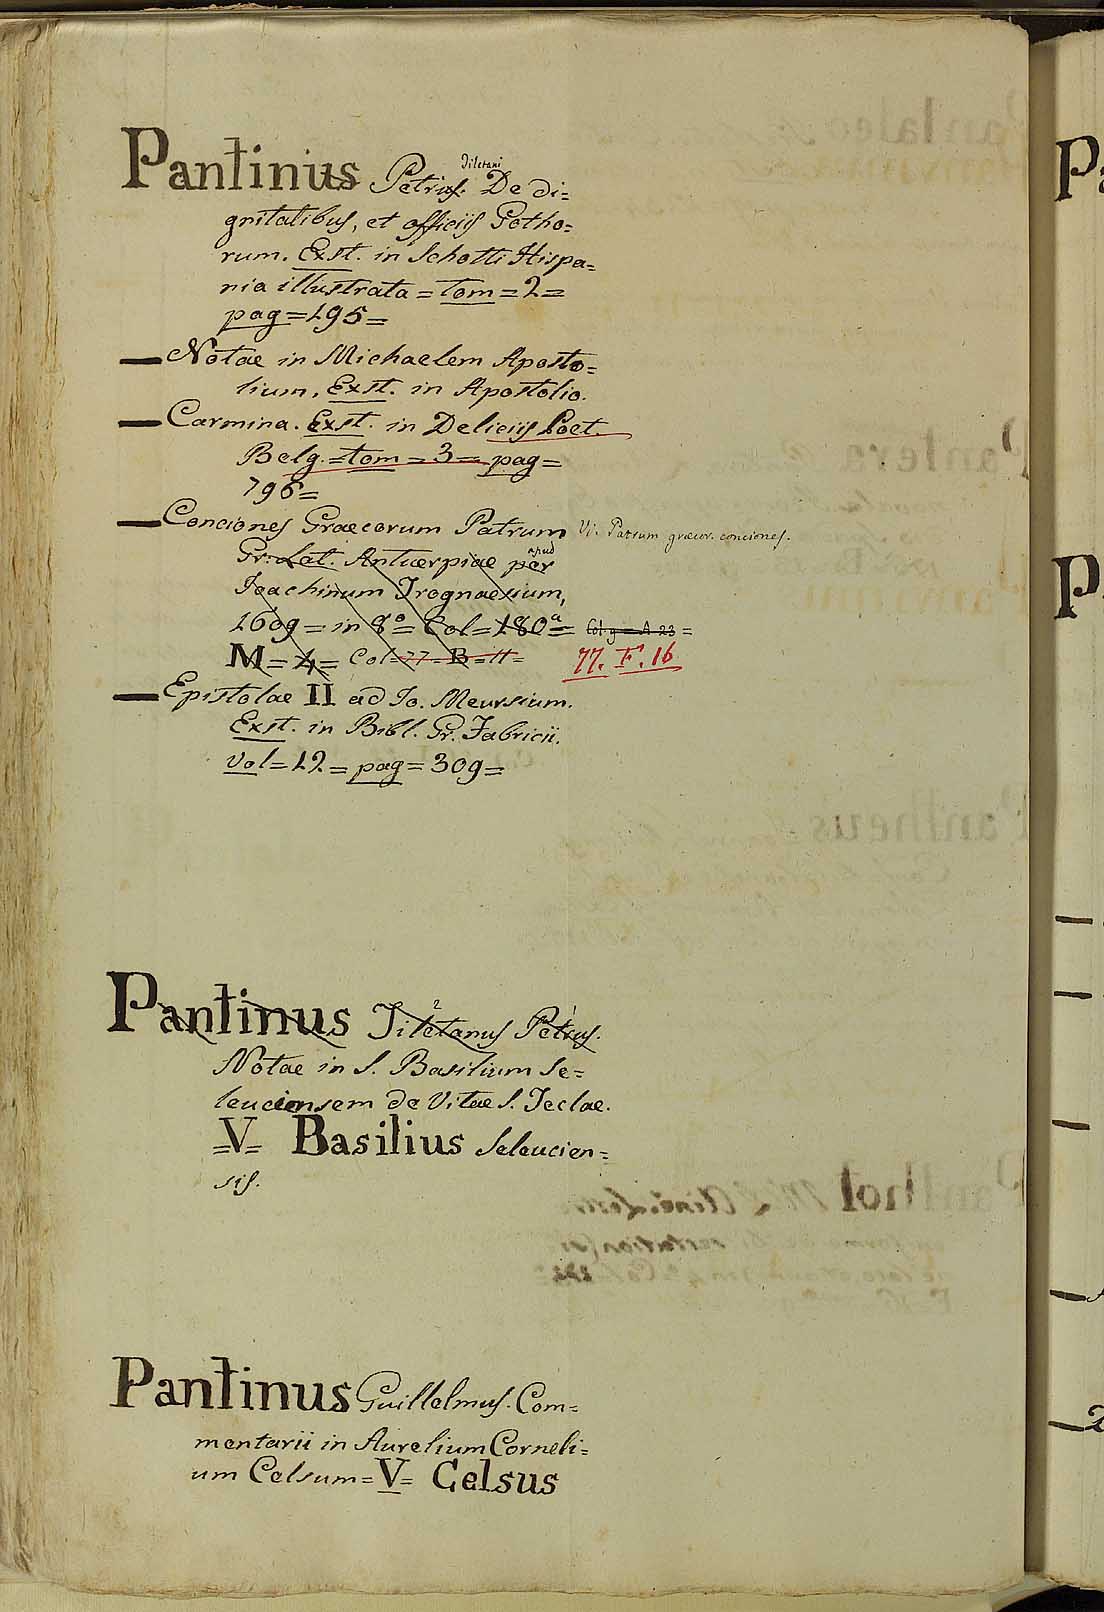 Pantinius Petrus. Tiletani De di=
gnitatibus, et officijs Gotho=
rum. Exst. in Schotti Hispa=
nia illustrata = tom = 2 =
pag = 195 =
— Notae in Michaelem Aposto=
lium. Exst. in Apostolio.
— Carmina. Exst. in Delicijs Poet.
Belg. = tom = 3 = pag =
796 =
— Conciones Graecorum Patrum Vi: Patrum græcor. conciones.
Gr: Lat. Antuerpiae per apud
Joachinum Trognaesium,
1609 = in 8° = Col = 180 a =
M = 4 = Col = 77 = B = 11 = 77. F. 16
— Epistolae II ad Jo. Meursium.
Exst. in Bibl. Gr. Fabricii.
vol = 12 = pag = 309 =
Pantinus Tiletanus 2 Petrus. 1
Notae in S. Basilium Se=
leuciensem de Vitae S. Teclae.
=V= Basilius Seleucien=
sis.
Pantinus Guillelmus. Com=
mentarii in Aurelium Corneli=
um Celsum =V= Celsus